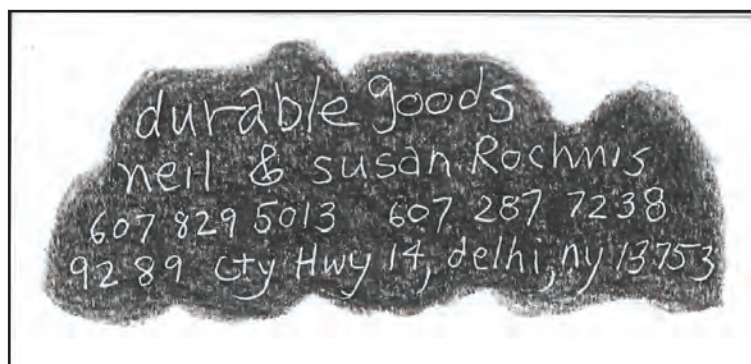 durable goods
neil & susan Rochmis
607 829 5013 607 287 7238
9289 cty Hwy 14, delhi, ny 13753